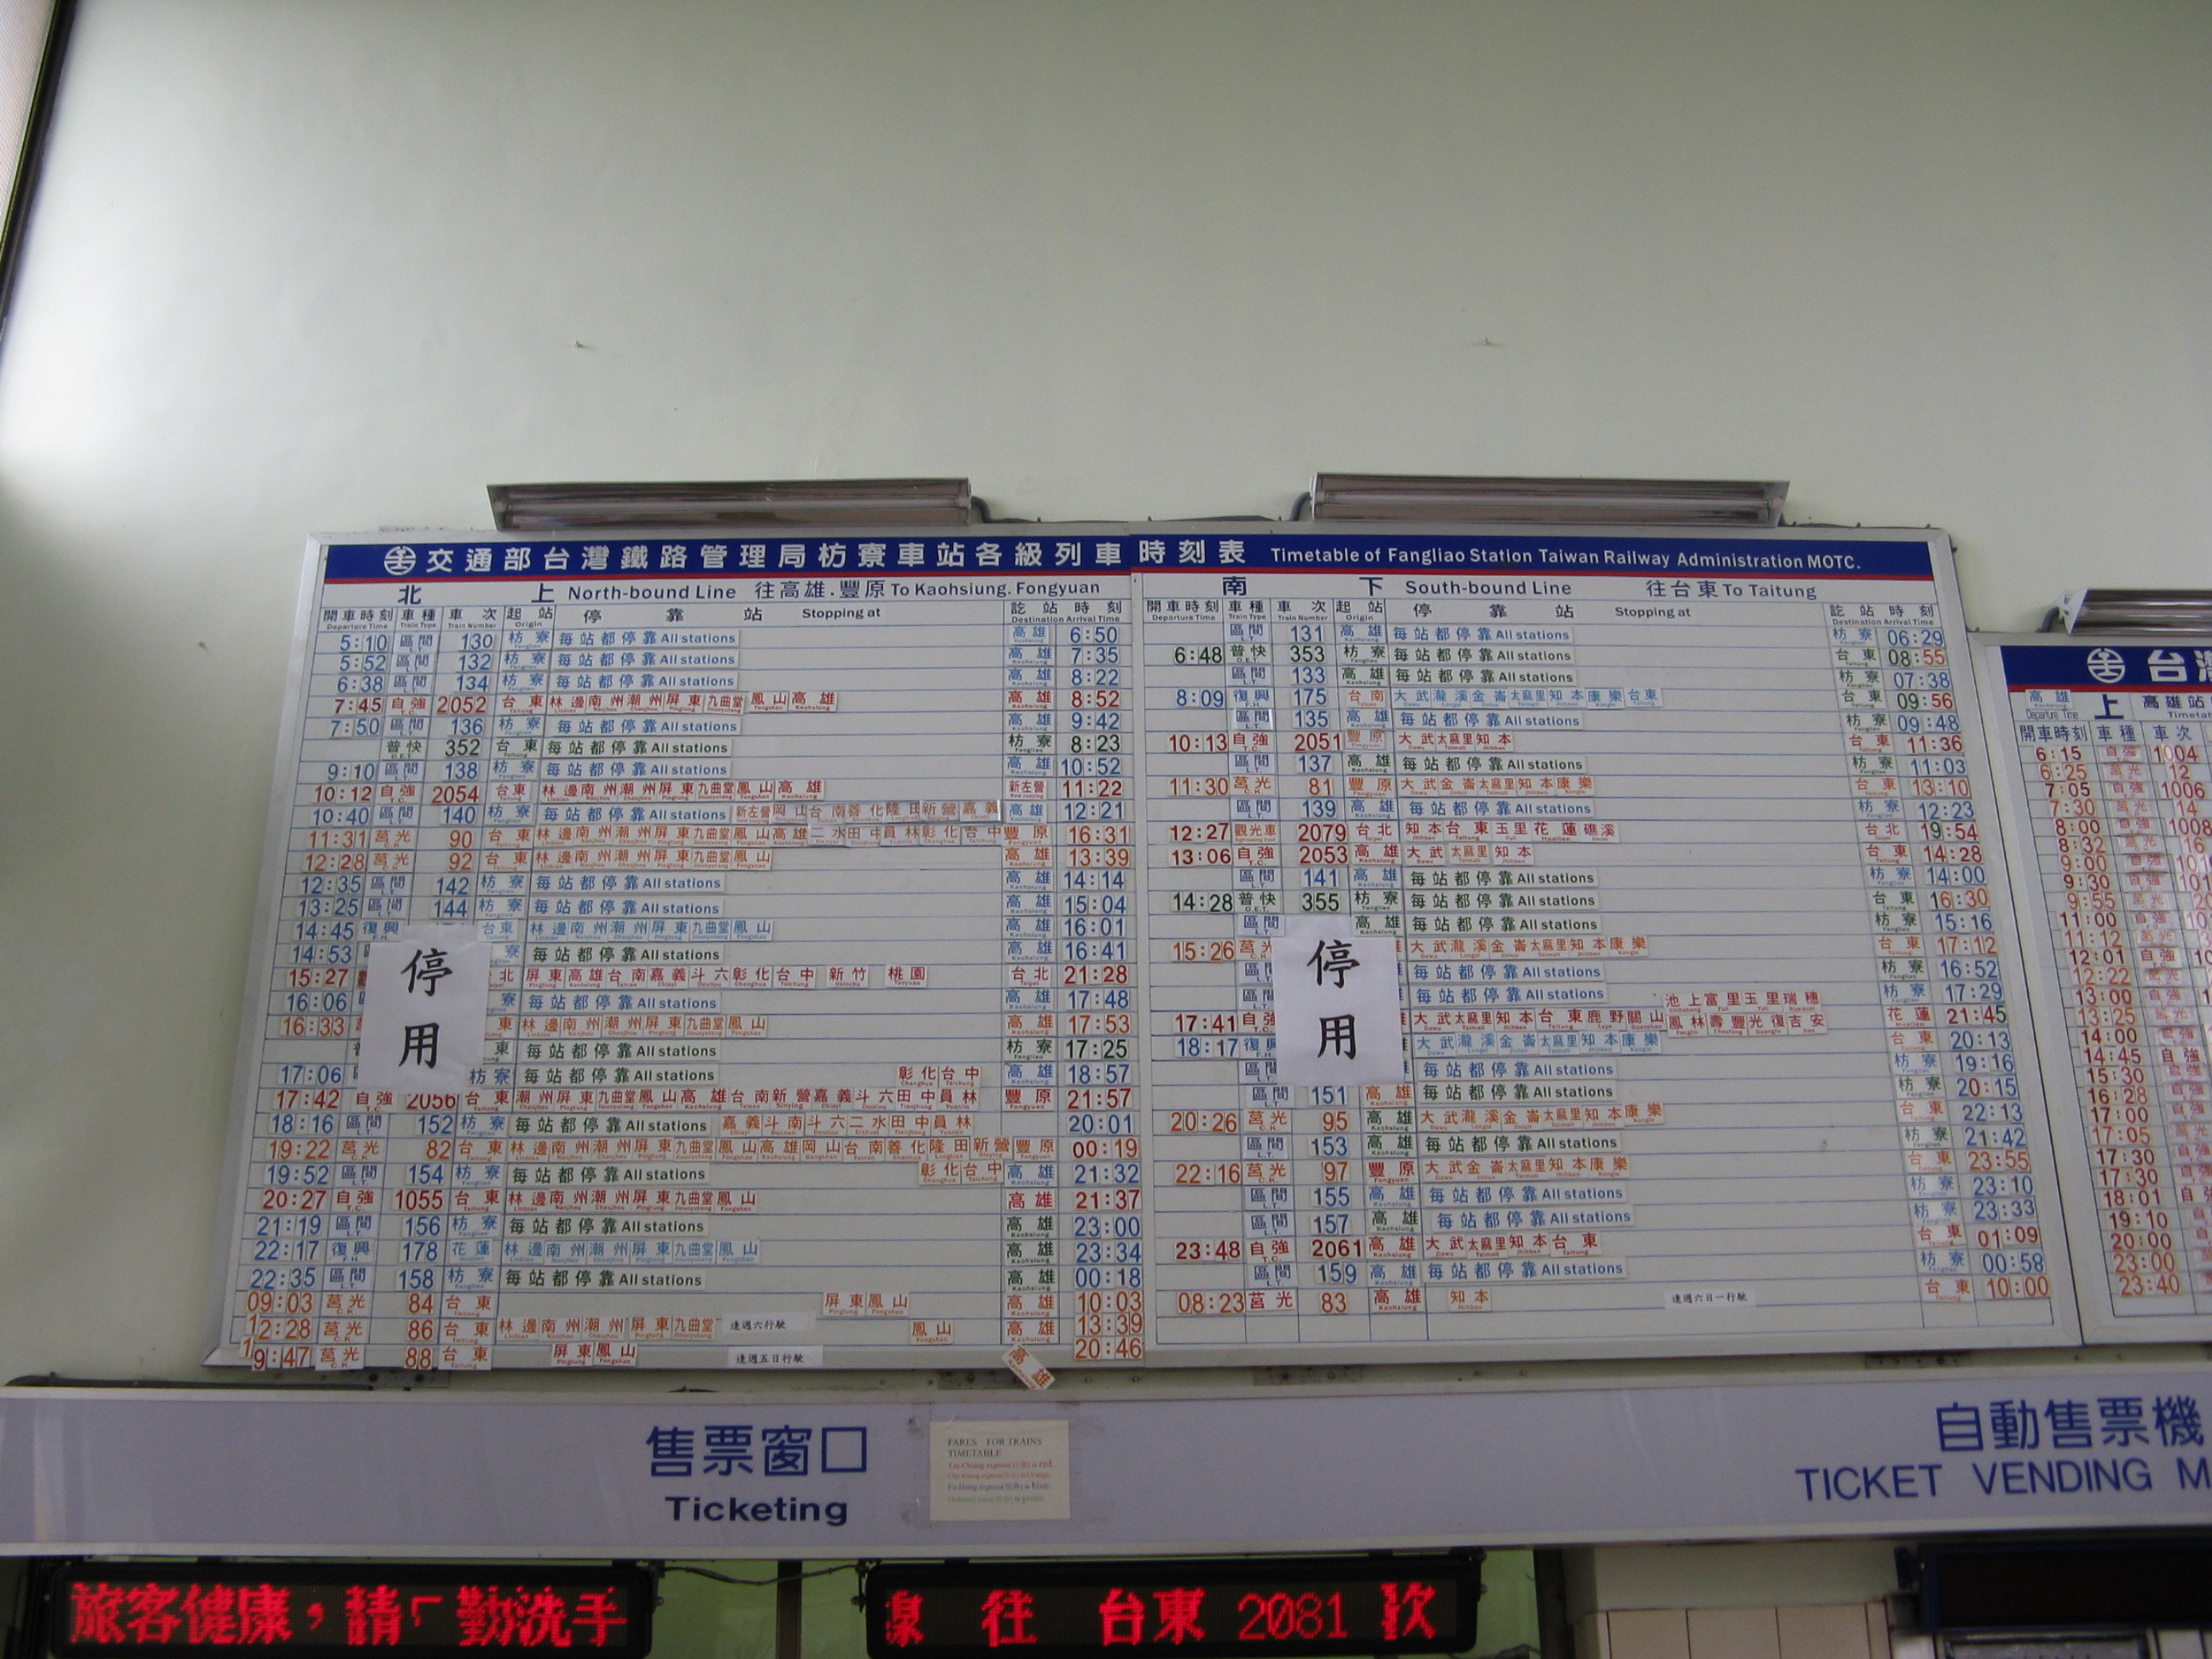 交通部台灣鐵路管理局枋寮車站各級列車時刻表 Timetable of Fangliao Station Taiwan Railway Administration MOTC.
北上 North-bound Line 往高雄.豐原 To Kaohsiung. Fongyuan
開車時刻 車種 車次 起站 停靠站 Stopping at 訖站時刻
Departure Time Train Type Train Number Origin Destination Arrival Time
5:10 區間 130 枋寮 每站都停靠 All stations 高雄 6:50
5:52 區間 132 枋寮 每站都停靠 All stations 高雄 7:35
6:38 區間 134 枋寮 每站都停靠 All stations 高雄 8:22
7:45 自強 2052 台東 林邊 南州 潮州 屏東 九曲堂 鳳山 高雄 高雄 8:52
7:50 區間 136 枋寮 每站都停靠 All stations 高雄 9:42
普快 352 台東 每站都停靠 All stations 枋寮 8:23
9:10 區間 138 枋寮 每站都停靠 All stations 高雄 10:52
10:12 自強 2054 台東 林邊 南州 潮州 屏東 九曲堂 鳳山 高雄 新左營 11:22
10:40 區間 140 枋寮 每站都停靠 All stations 新左營 岡山 台南 善化 隆田 新營 嘉義 高雄 12:21
11:31 莒光 90 台東 林邊 南州 潮州 屏東 九曲堂 鳳山 高雄 二水 田中 員林 彰化 台中 豐原 16:31
12:28 莒光 92 台東 林邊 南州 潮州 屏東 九曲堂 鳳山 高雄 13:39
12:35 區間 142 枋寮 每站都停靠 All stations 高雄 14:14
13:25 區間 144 枋寮 每站都停靠 All stations 高雄 15:04
14:45 復興 台東 林邊 南州 潮州 屏東 九曲堂 鳳山 高雄 16:01
14:53 寮 每站都停靠 All stations 高雄 16:41
15:27 北 屏東 高雄 台南 嘉義 斗六 彰化 台中 新竹 桃園 台北 21:28
16:06 寮 每站都停靠 All stations 高雄 17:48
16:33 東 林邊 南州 潮州 屏東 九曲堂 鳳山 高雄 17:53
東 每站都停靠 All stations 枋寮 17:25
17:06 枋寮 每站都停靠 All stations 彰化 台中 高雄 18:57
17:42 自強 2056 台東 潮州 屏東 九曲堂 鳳山 高雄 台南 新營 嘉義 斗六 田中 員林 豐原 21:57
18:16 區間 152 枋寮 每站都停靠 All stations 嘉義 斗南 斗六 二水 田中 員林 20:01
19:22 莒光 82 台東 林邊 南州 潮州 屏東 九曲堂 鳳山 高雄 岡山 台南 善化 隆田 新營 豐原 00:19
19:52 區間 154 枋寮 每站都停靠 All stations 彰化 台中 高雄 21:32
20:27 自強 1055 台東 林邊 南州 潮州 屏東 九曲堂 鳳山 高雄 21:37
21:19 區間 156 枋寮 每站都停靠 All stations 高雄 23:00
22:17 復興 178 花蓮 林邊 南州 潮州 屏東 九曲堂 鳳山 高雄 23:34
22:35 區間 158 枋寮 每站都停靠 All stations 高雄 00:18
09:03 莒光 84 台東 屏東 鳳山 高雄 10:03
12:28 莒光 86 台東 林邊 南州 潮州 屏東 九曲堂 逢週六行駛 鳳山 高雄 13:39
19:47 莒光 88 台東 屏東 鳳山 逢週五日行駛 高雄 20:46
停用
南下 South-bound Line 往台東 To Taitung
開車時刻 車種 車次 起站 停靠站 Stopping at 訖站時刻
Departure Time Train Type Train Number Origin Destination Arrival Time
區間 131 高雄 每站都停靠 All stations 枋寮 06:29
6:48 普快 353 枋寮 每站都停靠 All stations 台東 08:55
區間 133 高雄 每站都停靠 All stations 枋寮 07:38
8:09 復興 175 台南 大武 瀧溪 金崙 太麻里 知本 康樂 台東 台東 09:56
區間 135 高雄 每站都停靠 All stations 枋寮 09:48
10:13 自強 2051 豐原 大武 太麻里 知本 台東 11:36
區間 137 高雄 每站都停靠 All stations 枋寮 11:03
11:30 莒光 81 豐原 大武 金崙 太麻里 知本 康樂 台東 13:10
區間 139 高雄 每站都停靠 All stations 枋寮 12:23
12:27 觀光車 2079 台北 知本 台東 玉里 花蓮 礁溪 台北 19:54
13:06 自強 2053 高雄 大武 太麻里 知本 台東 14:28
區間 141 高雄 每站都停靠 All stations 枋寮 14:00
14:28 普快 355 枋寮 每站都停靠 All stations 台東 16:30
區間 高雄 每站都停靠 All stations 枋寮 15:16
15:26 莒光 大武 瀧溪 金崙 太麻里 知本 康樂 台東 17:12
區間 每站都停靠 All stations 枋寮 16:52
區間 每站都停靠 All stations 枋寮 17:29
池上 富里 玉里 瑞穗
17:41 自強 大武 太麻里 知本 台東 鹿野 關山 鳳林 壽豐 光復 吉安 花蓮 21:45
18:17 復興 大武 瀧溪 金崙 太麻里 知本 康樂 台東 20:13
區間 每站都停靠 All stations 枋寮 19:16
區間 151 高雄 每站都停靠 All stations 枋寮 20:15
20:26 莒光 95 高雄 大武 瀧溪 金崙 太麻里 知本 康樂 台東 22:13
區間 153 高雄 每站都停靠 All stations 枋寮 21:42
22:16 莒光 97 豐原 大武 金崙 太麻里 知本 康樂 台東 23:55
區間 155 高雄 每站都停靠 All stations 枋寮 23:10
區間 157 高雄 每站都停靠 All stations 枋寮 23:33
23:48 自強 2061 高雄 大武 太麻里 知本 台東 台東 01:09
區間 159 高雄 每站都停靠 All stations 枋寮 00:58
08:23 莒光 83 高雄 知本 逢週六日一行駛 台東 10:00
停用
台
高雄 上 高雄站
開車時刻 車種 車次
6:15 自強 1004
6:25 莒光 12
7:05 自強 1006
7:30 莒光 14
8:00 自強 1008
8:32 莒光 16
9:00 自強
9:30 自強
9:55 莒光
11:00 自強
11:12 莒光
12:01 自強
12:22 莒光
13:00 自強
13:25 莒光
14:00 自強
14:45 自強
15:30 自強
16:28 自強
17:00 自強
17:05 莒光
17:30
17:30
18:01 自強
19:10
20:00
23:00
23:40
售票窗口
Ticketing
FARES FOR TRAINS
TIMETABLE
自動售票機
TICKET VENDING M
旅客健康，請「勤洗手
往 台東 2081 次